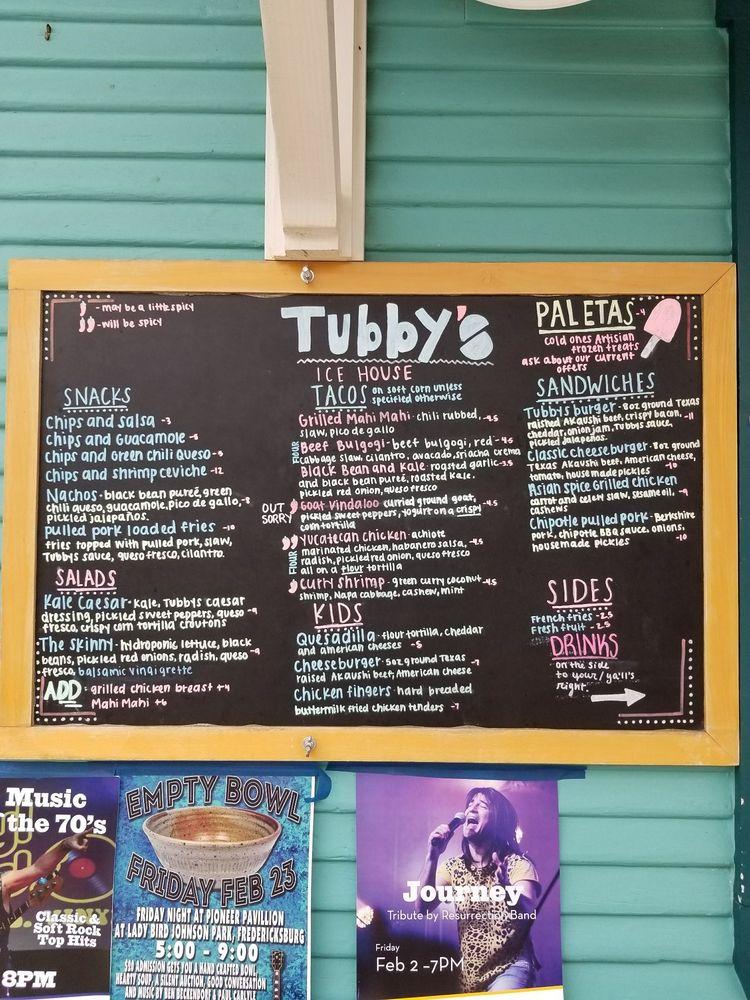 - may be a little spicy
- will be spicy
Tubby's
ICE HOUSE
PALETAS -4
cold ones Artisian
frozen treats
ask about our current
offers
SNACKS
Chips and salsa -3
Chips and Guacamole -8
Chips and Green chili Queso -8
Chips and shrimp ceviche -12
Nachos - black bean pureé, green
chili queso, guacamole, pico de gallo, -8
pickled jalapeños.
pulled pork loaded fries -10
fries topped with pulled pork, slaw,
Tubbys sauce, queso fresco, cilantro.
SALADS
Kale Caesar - Kale, Tubbys caesar
dressing, pickled sweet peppers, queso -9
fresco, crispy corn tortilla croutons
The Skinny - hydroponic lettuce, black
beans, pickled red onions, radish, queso -9
fresco, balsamic vinaigrette
ADD - grilled chicken breast +4
Mahi Mahi +6
TACOS on soft corn unless
specified otherwise
Grilled Mahi Mahi - chili rubbed, -4.5
slaw, pico de gallo
FLOUR
Beef Bulgogi - beef bulgogi, red -4.5
cabbage slaw, cilantro, avocado, sriacha crema
Black Bean and Kale - roasted garlic -3.5
and black bean pureé, roasted kale,
pickled red onion, queso fresco
OUT
SORRY
Goat Vindaloo curried ground goat, -4.5
pickled sweet peppers, yogurt on a crispy
corn tortilla
FLOUR
Yucatecan chicken - achiote
marinated chicken, habanero salsa, -4.5
radish, pickled red onion, queso fresco
all on a flour tortilla
Curry shrimp - green curry coconut -4.5
shrimp, Napa cabbage, cashew, mint
KIDS
Quesadilla - flour tortilla, cheddar
and american cheeses -5
Cheeseburger - 5oz ground Texas -7
raised Akaushi beef, American cheese
Chicken fingers - hard breaded
buttermilk fried chicken tenders -7
SANDWICHES
Tubby's burger - 8oz ground Texas
raised Akaushi beef, crispy bacon, -11
cheddar, onion jam, Tubbys sauce,
pickled jalapenos.
Classic cheeseburger - 8oz ground
Texas Akaushi beef, American cheese,
tomato, house made pickles -10
Asian spice Grilled chicken
carrot and celery slaw, sesame oil, -9
cashews
Chipotle pulled pork - Berkshire
pork, chipotle BBQ sauce, onions,
housemade pickles -10
SIDES
French fries -2.5
Fresh fruit -2.5
DRINKS
on the side
to your/ya'll's
right.
Music
the 70's
Classic &
Soft Rock
Top Hits
8PM
EMPTY BOWL
FRIDAY FEB 23
FRIDAY NIGHT AT PIONEER PAVILLION
AT LADY BIRD JOHNSON PARK, FREDERICKSBURG
5:00 - 9:00
$20 ADMISSION GETS YOU A HAND CRAFTED BOWL,
HEARTY SOUP, A SILENT AUCTION, GOOD CONVERSATION
AND MUSIC BY BEN BECKENDORF & PAUL CARLYLE
Journey
Tribute by Resurrection Band
Friday
Feb 2 -7PM